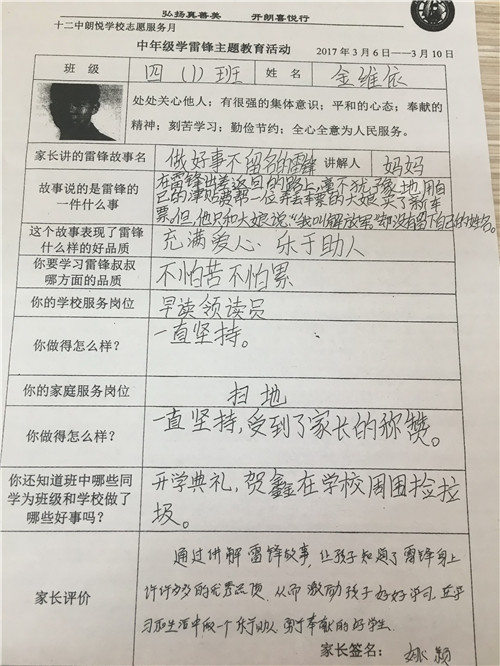 弘扬真善美 开朗喜悦行
十二中朗悦学校志愿服务月
中年级学雷锋主题教育活动 2017年3月6日——3月10日
班 级 四(1)班 姓 名 金维依
处处关心他人；有很强的集体意识；平和的心态；奉献的
精神；刻苦学习；勤俭节约；全心全意为人民服务。
家长讲的雷锋故事名 做好事不留名的雷锋 讲解人 妈妈
故事说的是雷锋的
一件什么事
在雷锋出差返回的路上，毫不犹豫地用自
己的津贴费第一位弄丢车票的大娘买了新车
票。但，他只和大娘说：“我叫解放军”却没有留下自己的姓名。
这个故事表现了雷锋
什么样的好品质
充满爱心、乐于助人
你要学习雷锋叔叔
哪方面的品质
不怕苦不怕累
你的学校服务岗位 早读领读员
你做得怎么样？ 一直坚持。
你的家庭服务岗位 扫地
你做得怎么样？ 一直坚持，受到了家长的称赞。
你还知道班中哪些同
学为班级和学校做了
哪些好事吗？
开学典礼，贺鑫在学校周围捡垃
圾。
家长评价
通过讲解雷锋故事，让孩子知道了雷锋身上
许许多多的优秀品质，从而激励孩子好好学习，在学
习和生活中做一个乐于助人 勇于奉献的好学生.
家长签名：